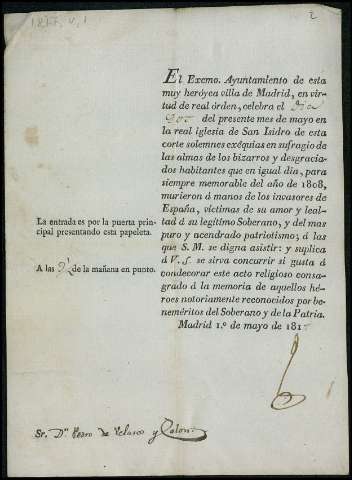 2
El Excmo. Ayuntamiento de esta
muy heróyca villa de Madrid, en vir-
tud de real órden, celebra el Dia
dos del presente mes de mayo en
la real iglesia de San Isidro de esta
corte solemnes exêquias en sufragio de
las almas de los bizarros y desgracia-
dos habitantes que en igual dia, para
siempre memorable del año de 1808,
murieron á manos de los invasores de
España, víctimas de su amor y leal-
tad á su legítimo Soberano, y del mas
puro y acendrado patriotismo; á las
que S. M. se digna asistir: y suplica
á V. S. se sirva concurrir si gusta á
condecorar este acto religioso consa-
grado á la memoria de aquellos hé-
roes notoriamente reconocidos por be-
neméritos del Soberano y de la Patria.
Madrid 1.º de mayo de 181
La entrada es por la puerta prin-
cipal presentando esta papeleta.
A las de la mañana en punto.
Sr. Dn. Pedro de Velasco y Colon